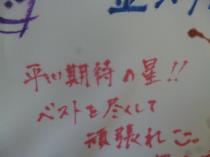 期待の星!!
ベストを尽くして
頑張れ